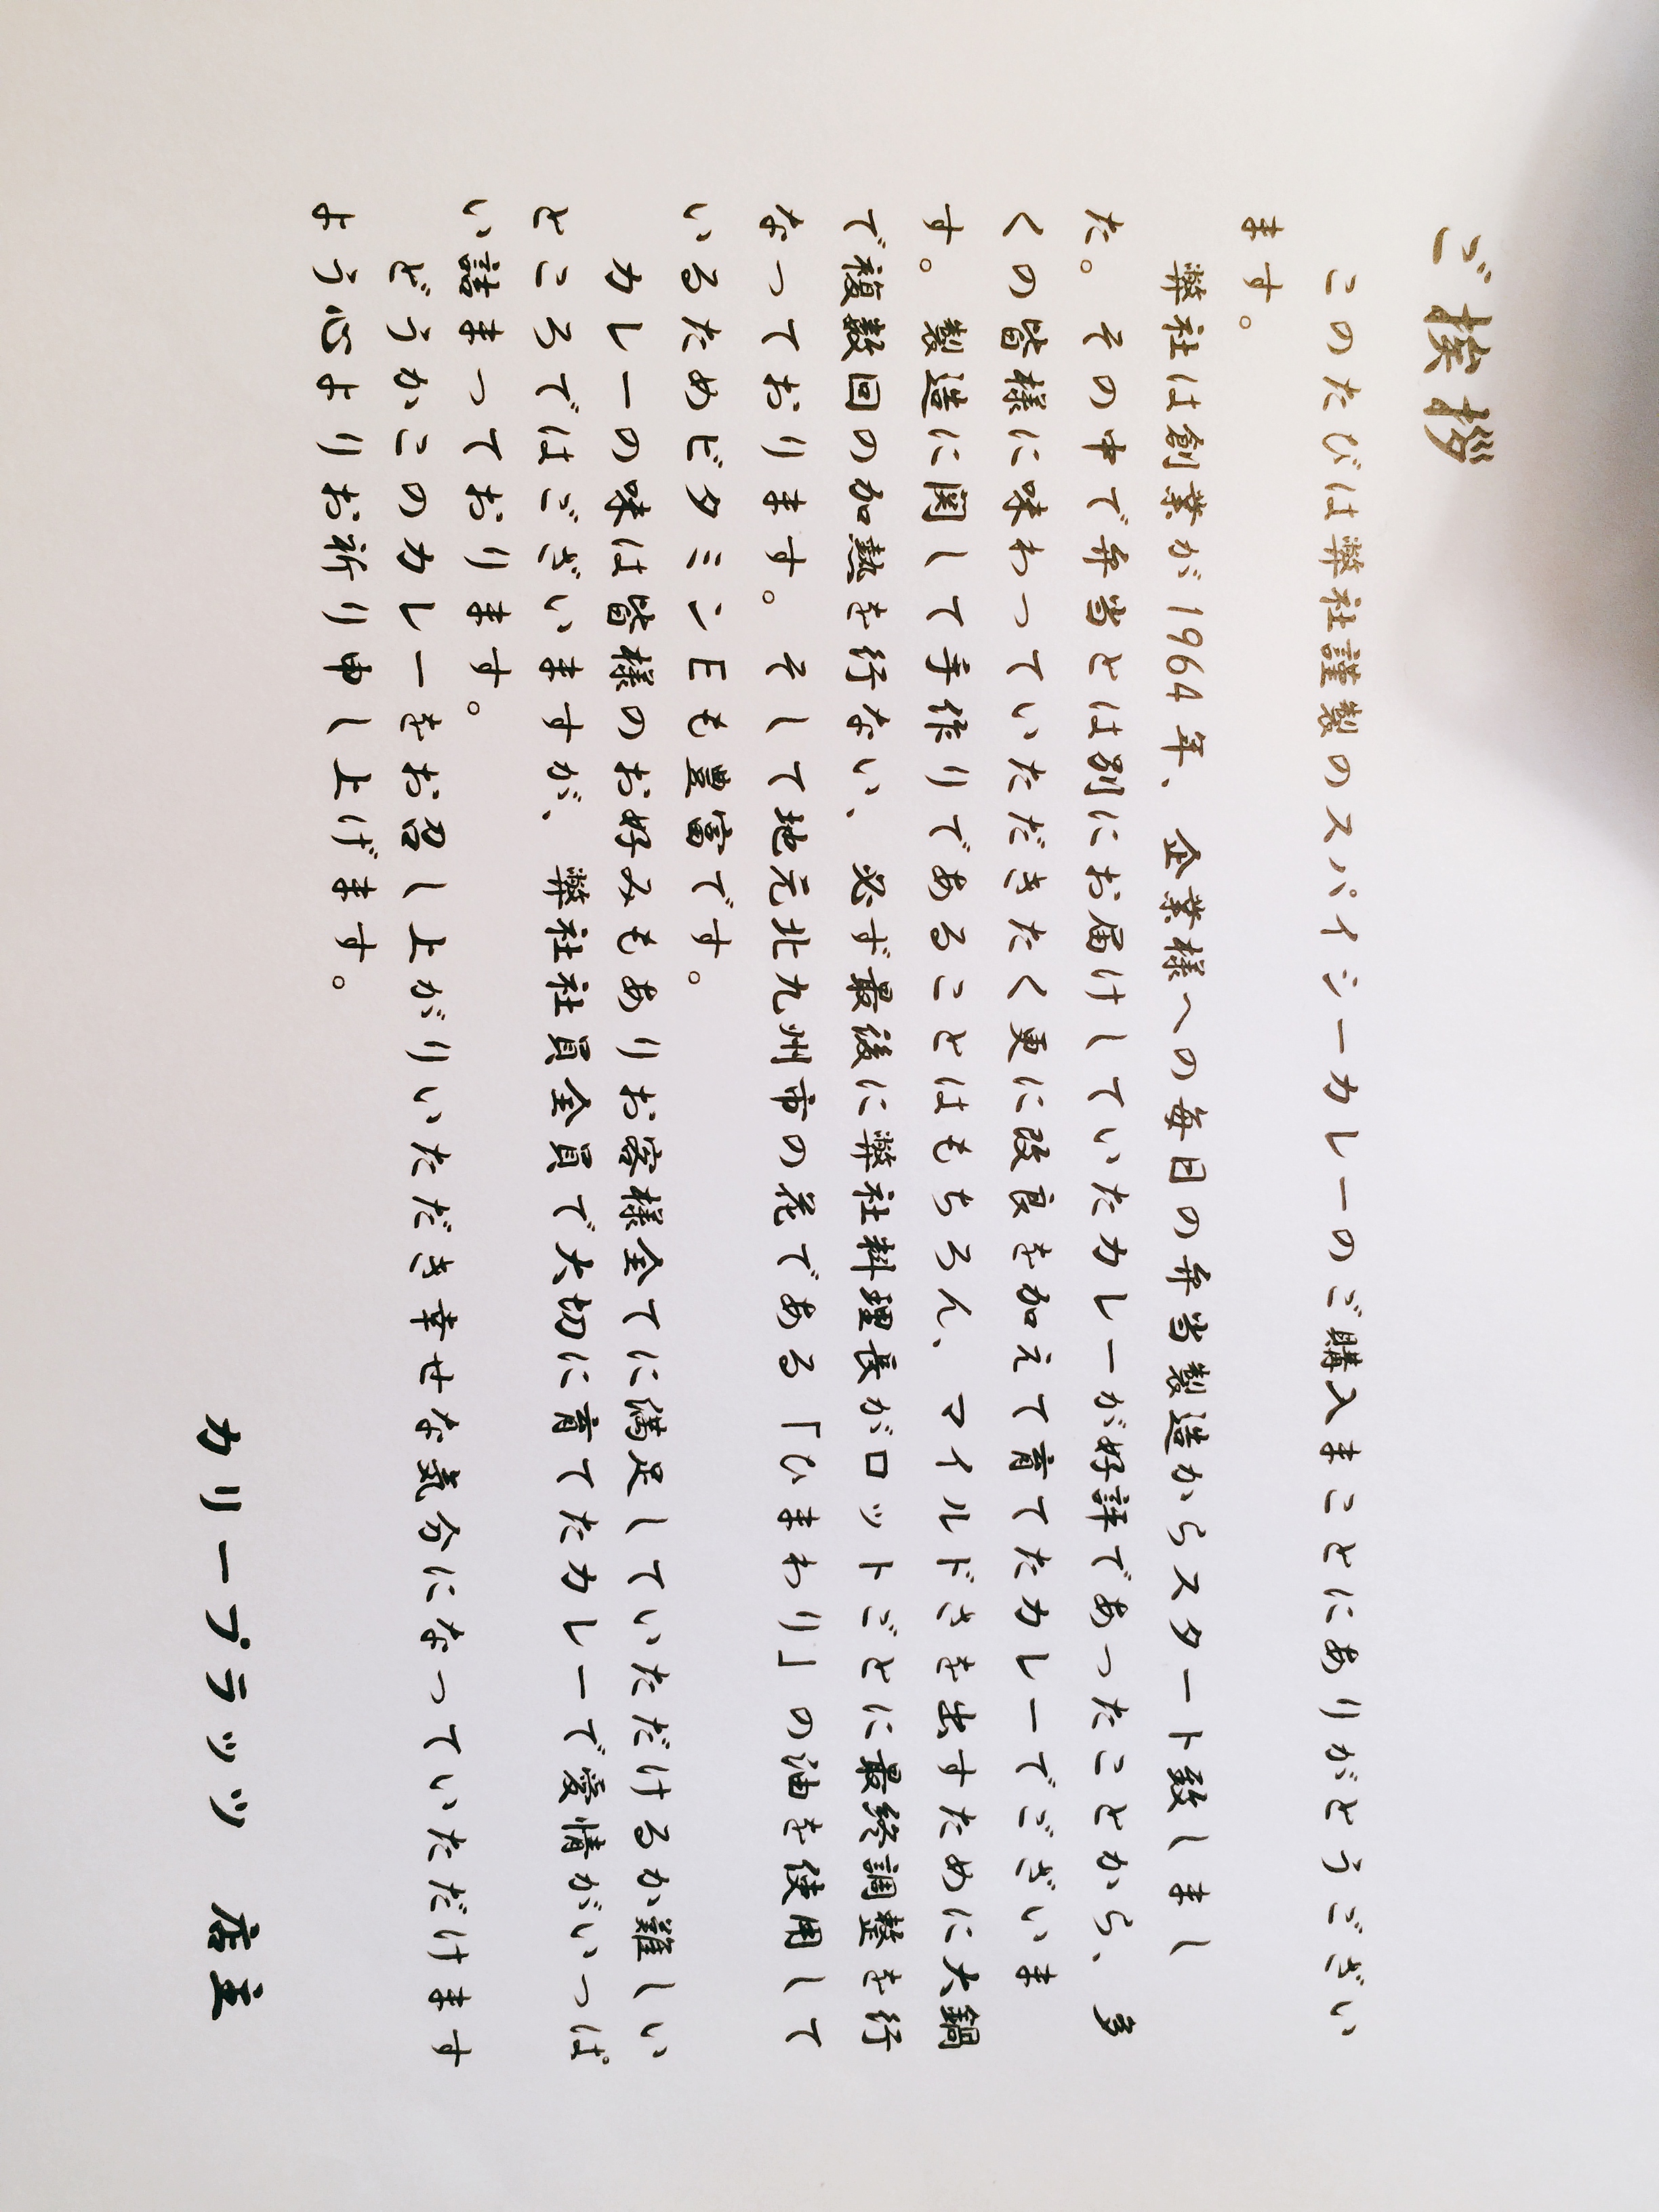 ご挨拶
このたびは弊社謹製のスパイシーカレーのご購入まことにありがとうござい
ます。
弊社は創業が1964年、企業様への毎日の弁当製造からスタート致しまし
た。その中で弁当とは別にお届けしていたカレーが好評であったことから、多
くの皆様に味わっていただきたく更に改良を加えて育てたカレーでございま
す。製造に関して手作りであることはもちろん、マイルドさを出すために大鍋
で複数回の加熱を行ない、必ず最後に弊社料理長がロットごとに最終調整を行
なっております。そして地元北九州市の花である「ひまわり」の油を使用して
いるためビタミンEも豊富です。
カレーの味は皆様のお好みもありお客様全てに満足していただけるか難しい
ところではございますが、弊社社員全員で大切に育てたカレーで愛情がいっぱ
い詰まっております。
どうかこのカレーをお召し上がりいただき幸せな気分になっていただけます
よう心よりお祈り申し上げます。
カリーブラッツ 店主